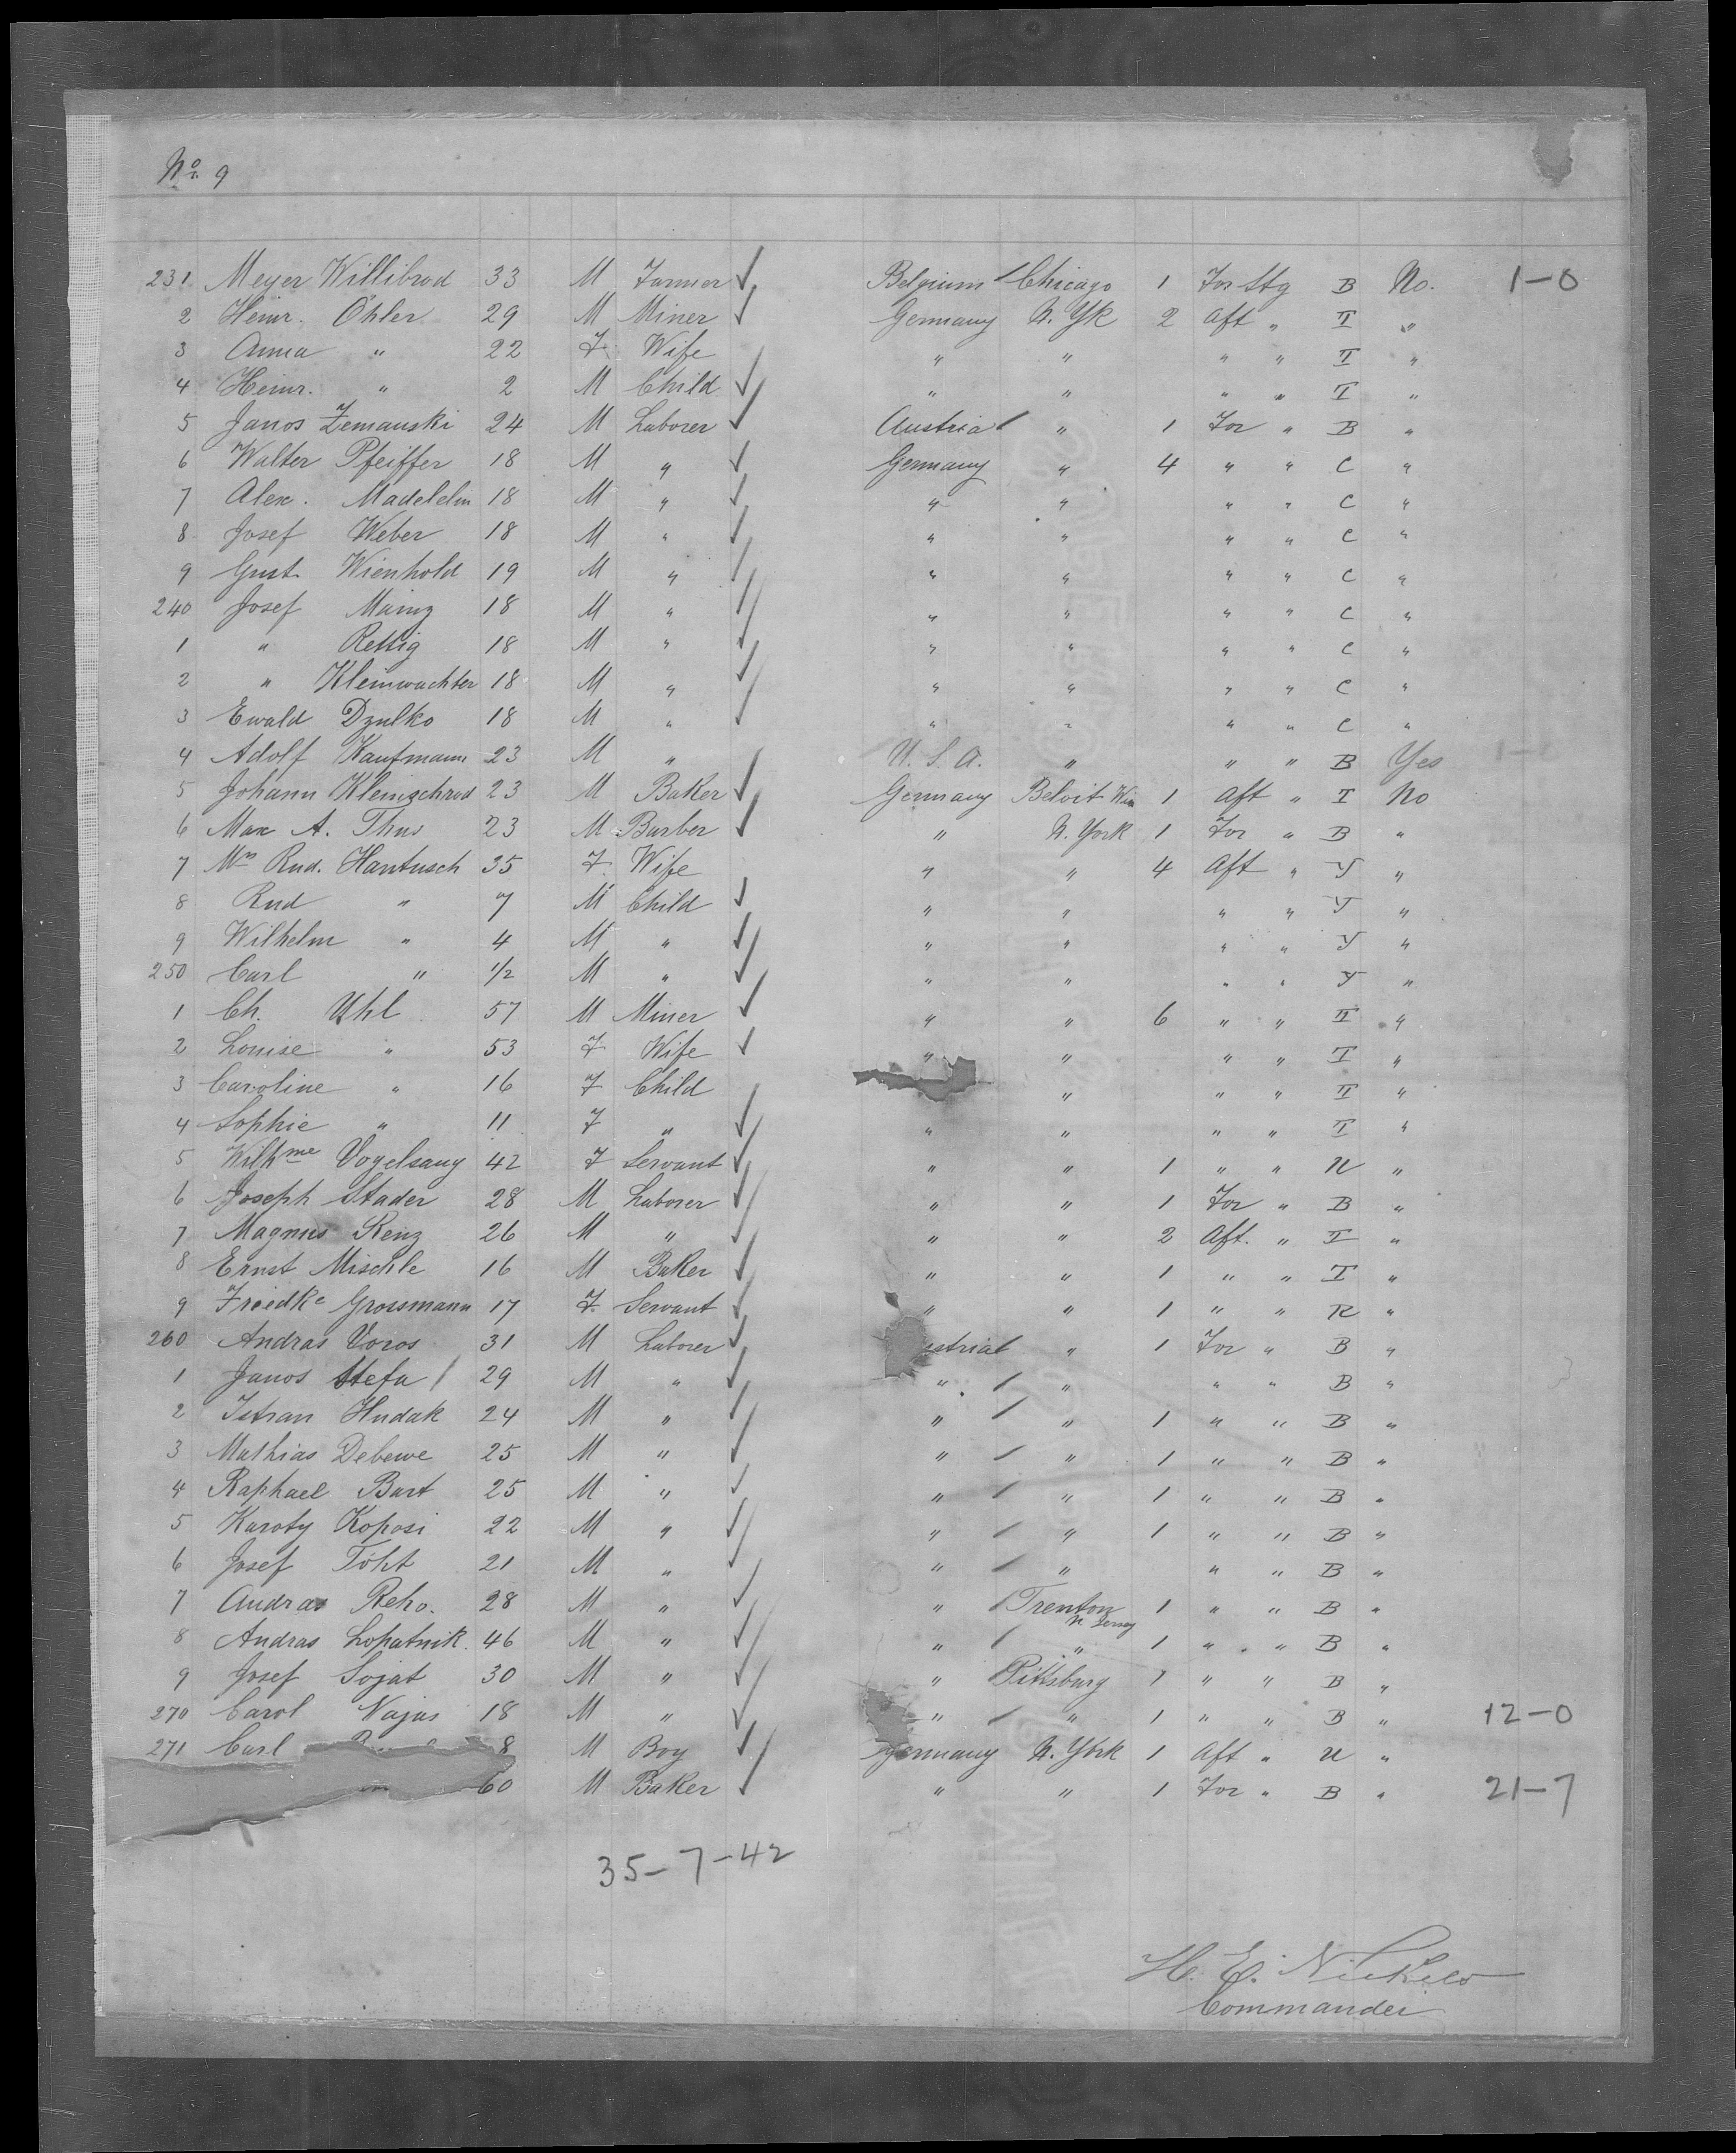 No. 9
231 Meyer Willibrod 33 M Farmer Belgium Chicago 1 For Stg B No. 1-0
2 Heinr. Öhler 29 M Miner Germany N. Yk 2 Aft " I "
3 Anna " 22 F Wife " " " " I "
4 Heinr. " 2 M Child " " " " I "
5 Janos Zemanski 24 M Laborer Austria " 1 For " B "
6 Walter Pfeiffer 18 M " Germany " 4 " " C "
7 Alex. 18 M " " " " " C "
8 Josef Weber 18 M " " " " " C "
9 Gust. Wienhold 19 M " " " " " C "
240 Josef Mainz 18 M " " " " " C "
1 " Rettig 18 M " " " " " C "
2 " Kleinwachter 18 M " " " " " C "
3 Ewald Dzulko 18 M " " " " " C "
4 Adolf Kaufmann 23 M " U.S.A. " " " B Yes
5 Johann Kleinschrod 23 M Baker Germany Beloit Wis 1 Aft " I No
6 Max A. Thus 23 M Barber " N. York 1 For " B "
7 Mrs Rud. Hantusch 35 F Wife " " 4 Aft " Y "
8 Rud " 7 M Child " " " " Y "
9 Wilhelm " 4 M " " " " " Y "
250 Carl " 1/2 M " " " " " Y "
1 Ch. Uhl 57 M Miner " " 6 " " II "
2 Louise " 53 F Wife " " " " I "
3 Caroline " 16 F Child " " " II "
4 Sophie " 11 F " " " " " I "
5 Wilhme Vogelsang 42 F Servant " " 1 " " U "
6 Joseph Stader 28 M Laborer " " 1 For " B "
7 Magnus Renz 26 M " " " 2 Aft. " I "
8 Ernst Mischle 16 M Baker " " 1 " " I "
9 Friedke Grossmann 17 F. Servant " " 1 " " R "
260 Andras Voros 31 M Laborer stria " 1 For " B "
1 Janos Stefa 29 M " " " " " B "
2 Istvan Hudak 24 M " " " 1 " " B "
3 Mathias Debewe 25 M " " " 1 " " B "
4 Raphael Bart 25 M " " " 1 " " B "
5 Karoty Koposi 22 M " " " 1 " " B "
6 Josef Töht 21 M " " " " " B "
7 Andras Reho. 28 M " " Trenton N Jersey 1 " " B "
8 Andras Lopatnik. 46 M " " " 1 " " B "
9 Josef Sojat 30 M " " Pittsburg 1 " " B "
270 Carol Najas 18 M " " " 1 " " B " 12-0
271 Carl 8 M Boy Germany N. York 1 Aft " U "
60 M Baker " " 1 For " B " 21-7
35-7-42
H. E. Nickels
Commander